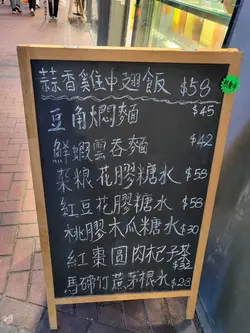 蒜香雞中翅飯 $58
豆角燜麵 $45
鮮蝦雲吞麵 $42
雜粮花膠糖水 $58
紅豆花膠糖水 $58
桃膠木瓜糖水 $30
紅棗圓肉杞子茶 $32
馬蹄竹蔗茅根水 $28